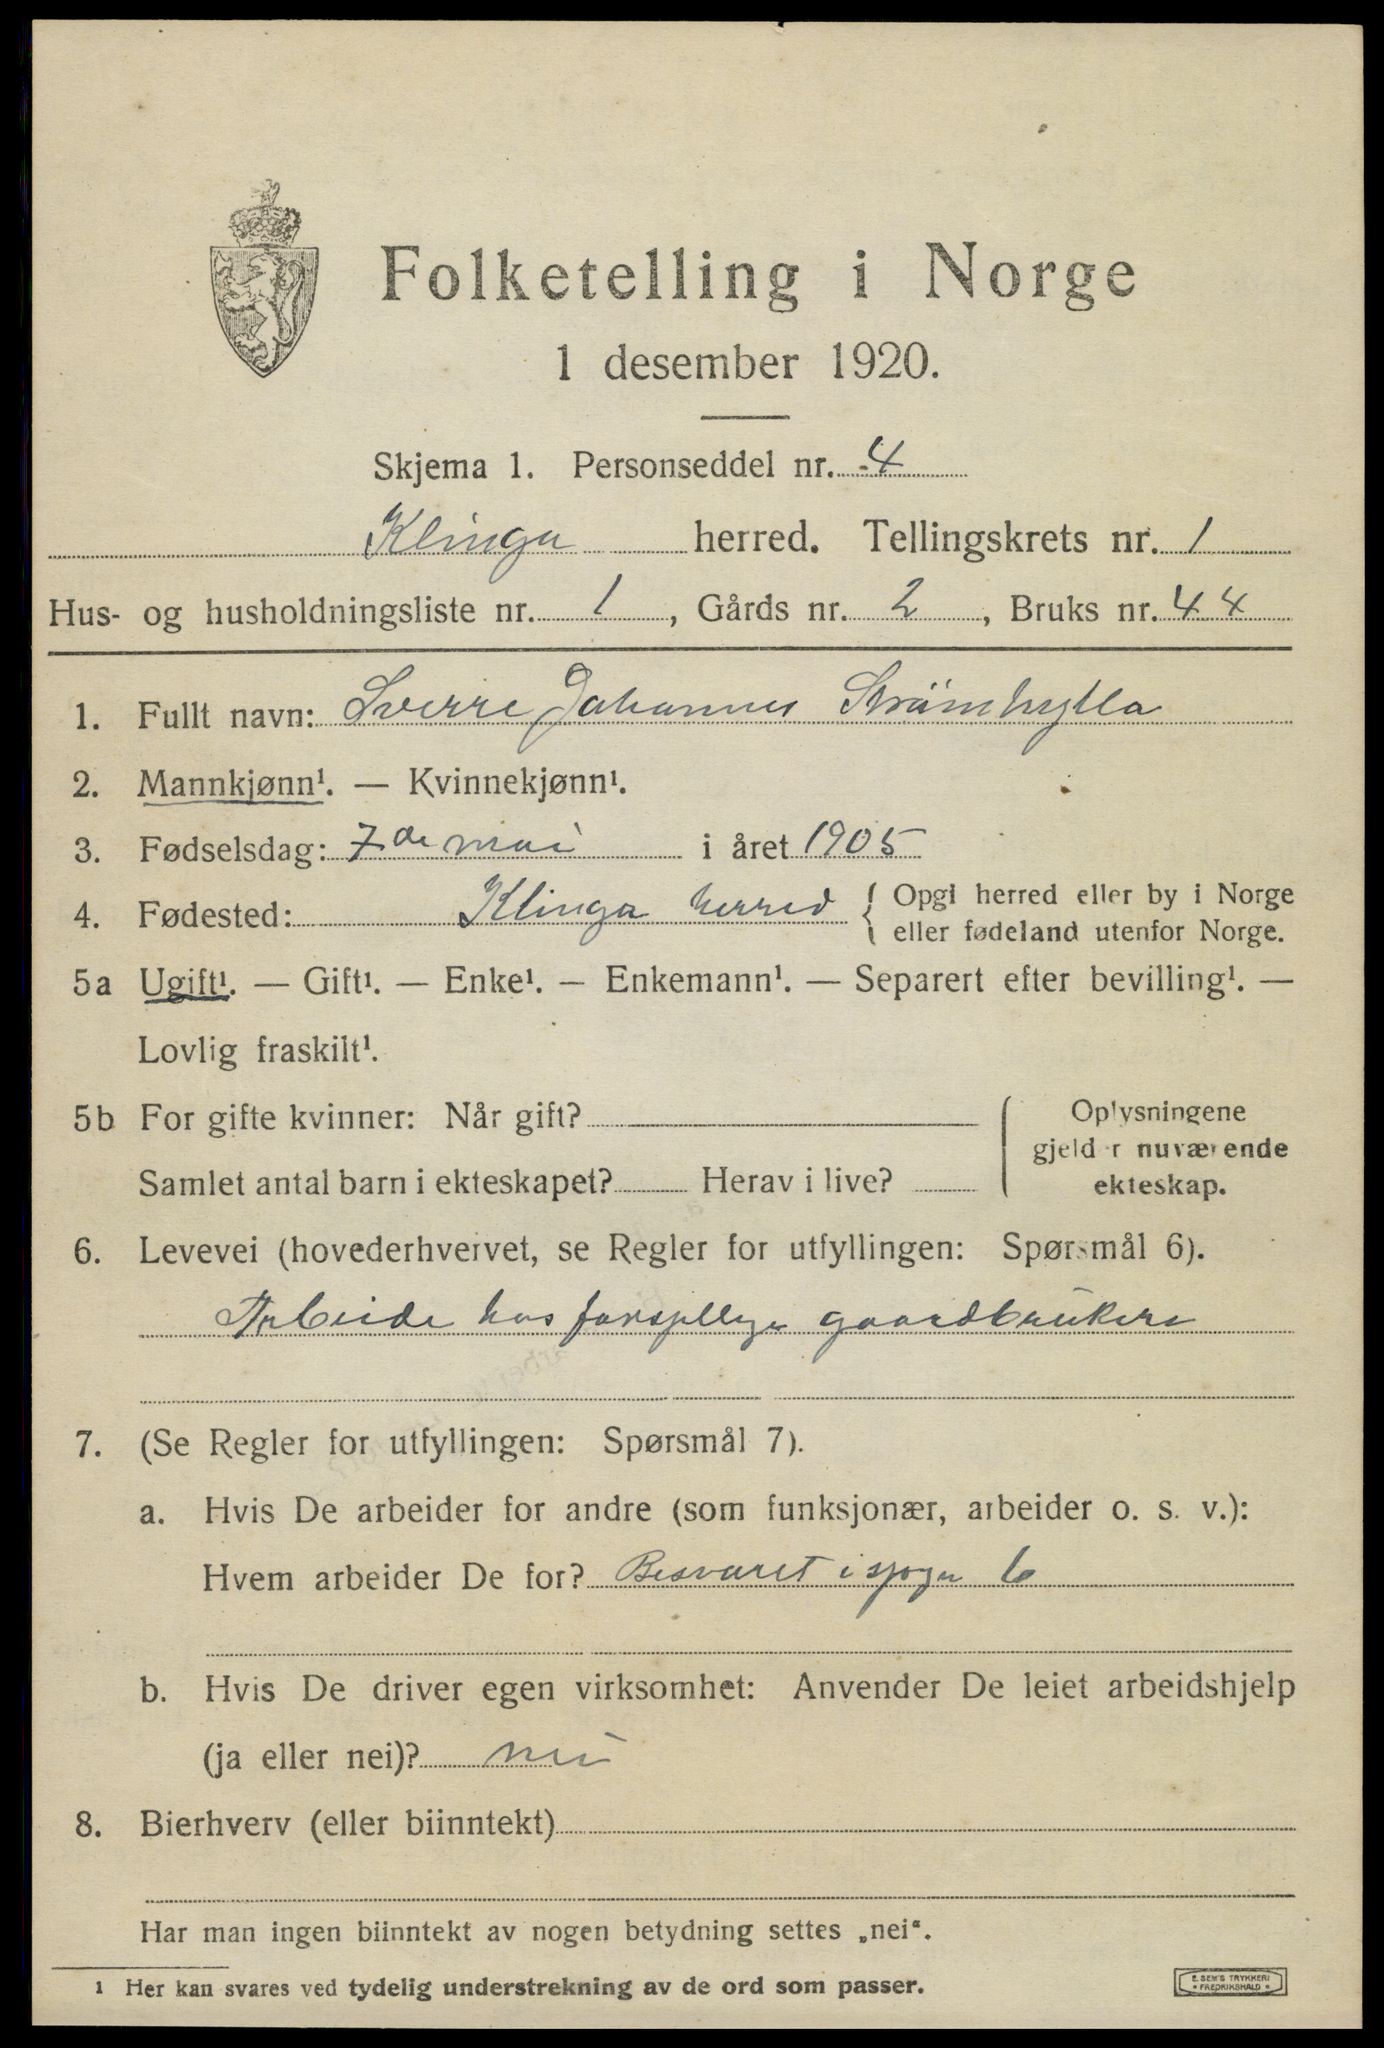 Folketelling i Norge
1 desember 1920.
Skjema 1. Personseddel nr. 4
Klinga herred. Tellingskrets nr. 1
Hus- og husholdningsliste nr. 1, Gårds nr. 2, Bruks nr. 44
1. Fullt navn: Sverre Johannes Strømhylla
2. Mannkjønn¹. — Kvinnekjønn¹.
3. Fødselsdag: 7de mai i året 1905
4. Fødested: Klinga herred { Opgi herred eller by i Norge
eller fødeland utenfor Norge.
5a Ugift¹. — Gift¹. — Enke¹. — Enkemann¹. — Separert efter bevilling¹. —
Lovlig fraskilt¹.
5b For gifte kvinner: Når gift?
Samlet antal barn i ekteskapet? Herav i live?
Oplysningene
gjelder nuværende
ekteskap.
6. Levevei (hovederhvervet, se Regler for utfyllingen: Spørsmål 6).
Arbeide hos gaardbrukere
7. (Se Regler for utfyllingen: Spørsmål 7).
a. Hvis De arbeider for andre (som funksjonær, arbeider o. s. v.):
Hvem arbeider De for? Besvaret i 6
b. Hvis De driver egen virksomhet: Anvender De leiet arbeidshjelp
(ja eller nei)? nei
8. Bierhverv (eller biinntekt)
Har man ingen biinntekt av nogen betydning settes „nei“.
1 Her kan svares ved tydelig understrekning av de ord som passer.
E. SEM'S TRYKKERI
* FREDRIKSHALD *